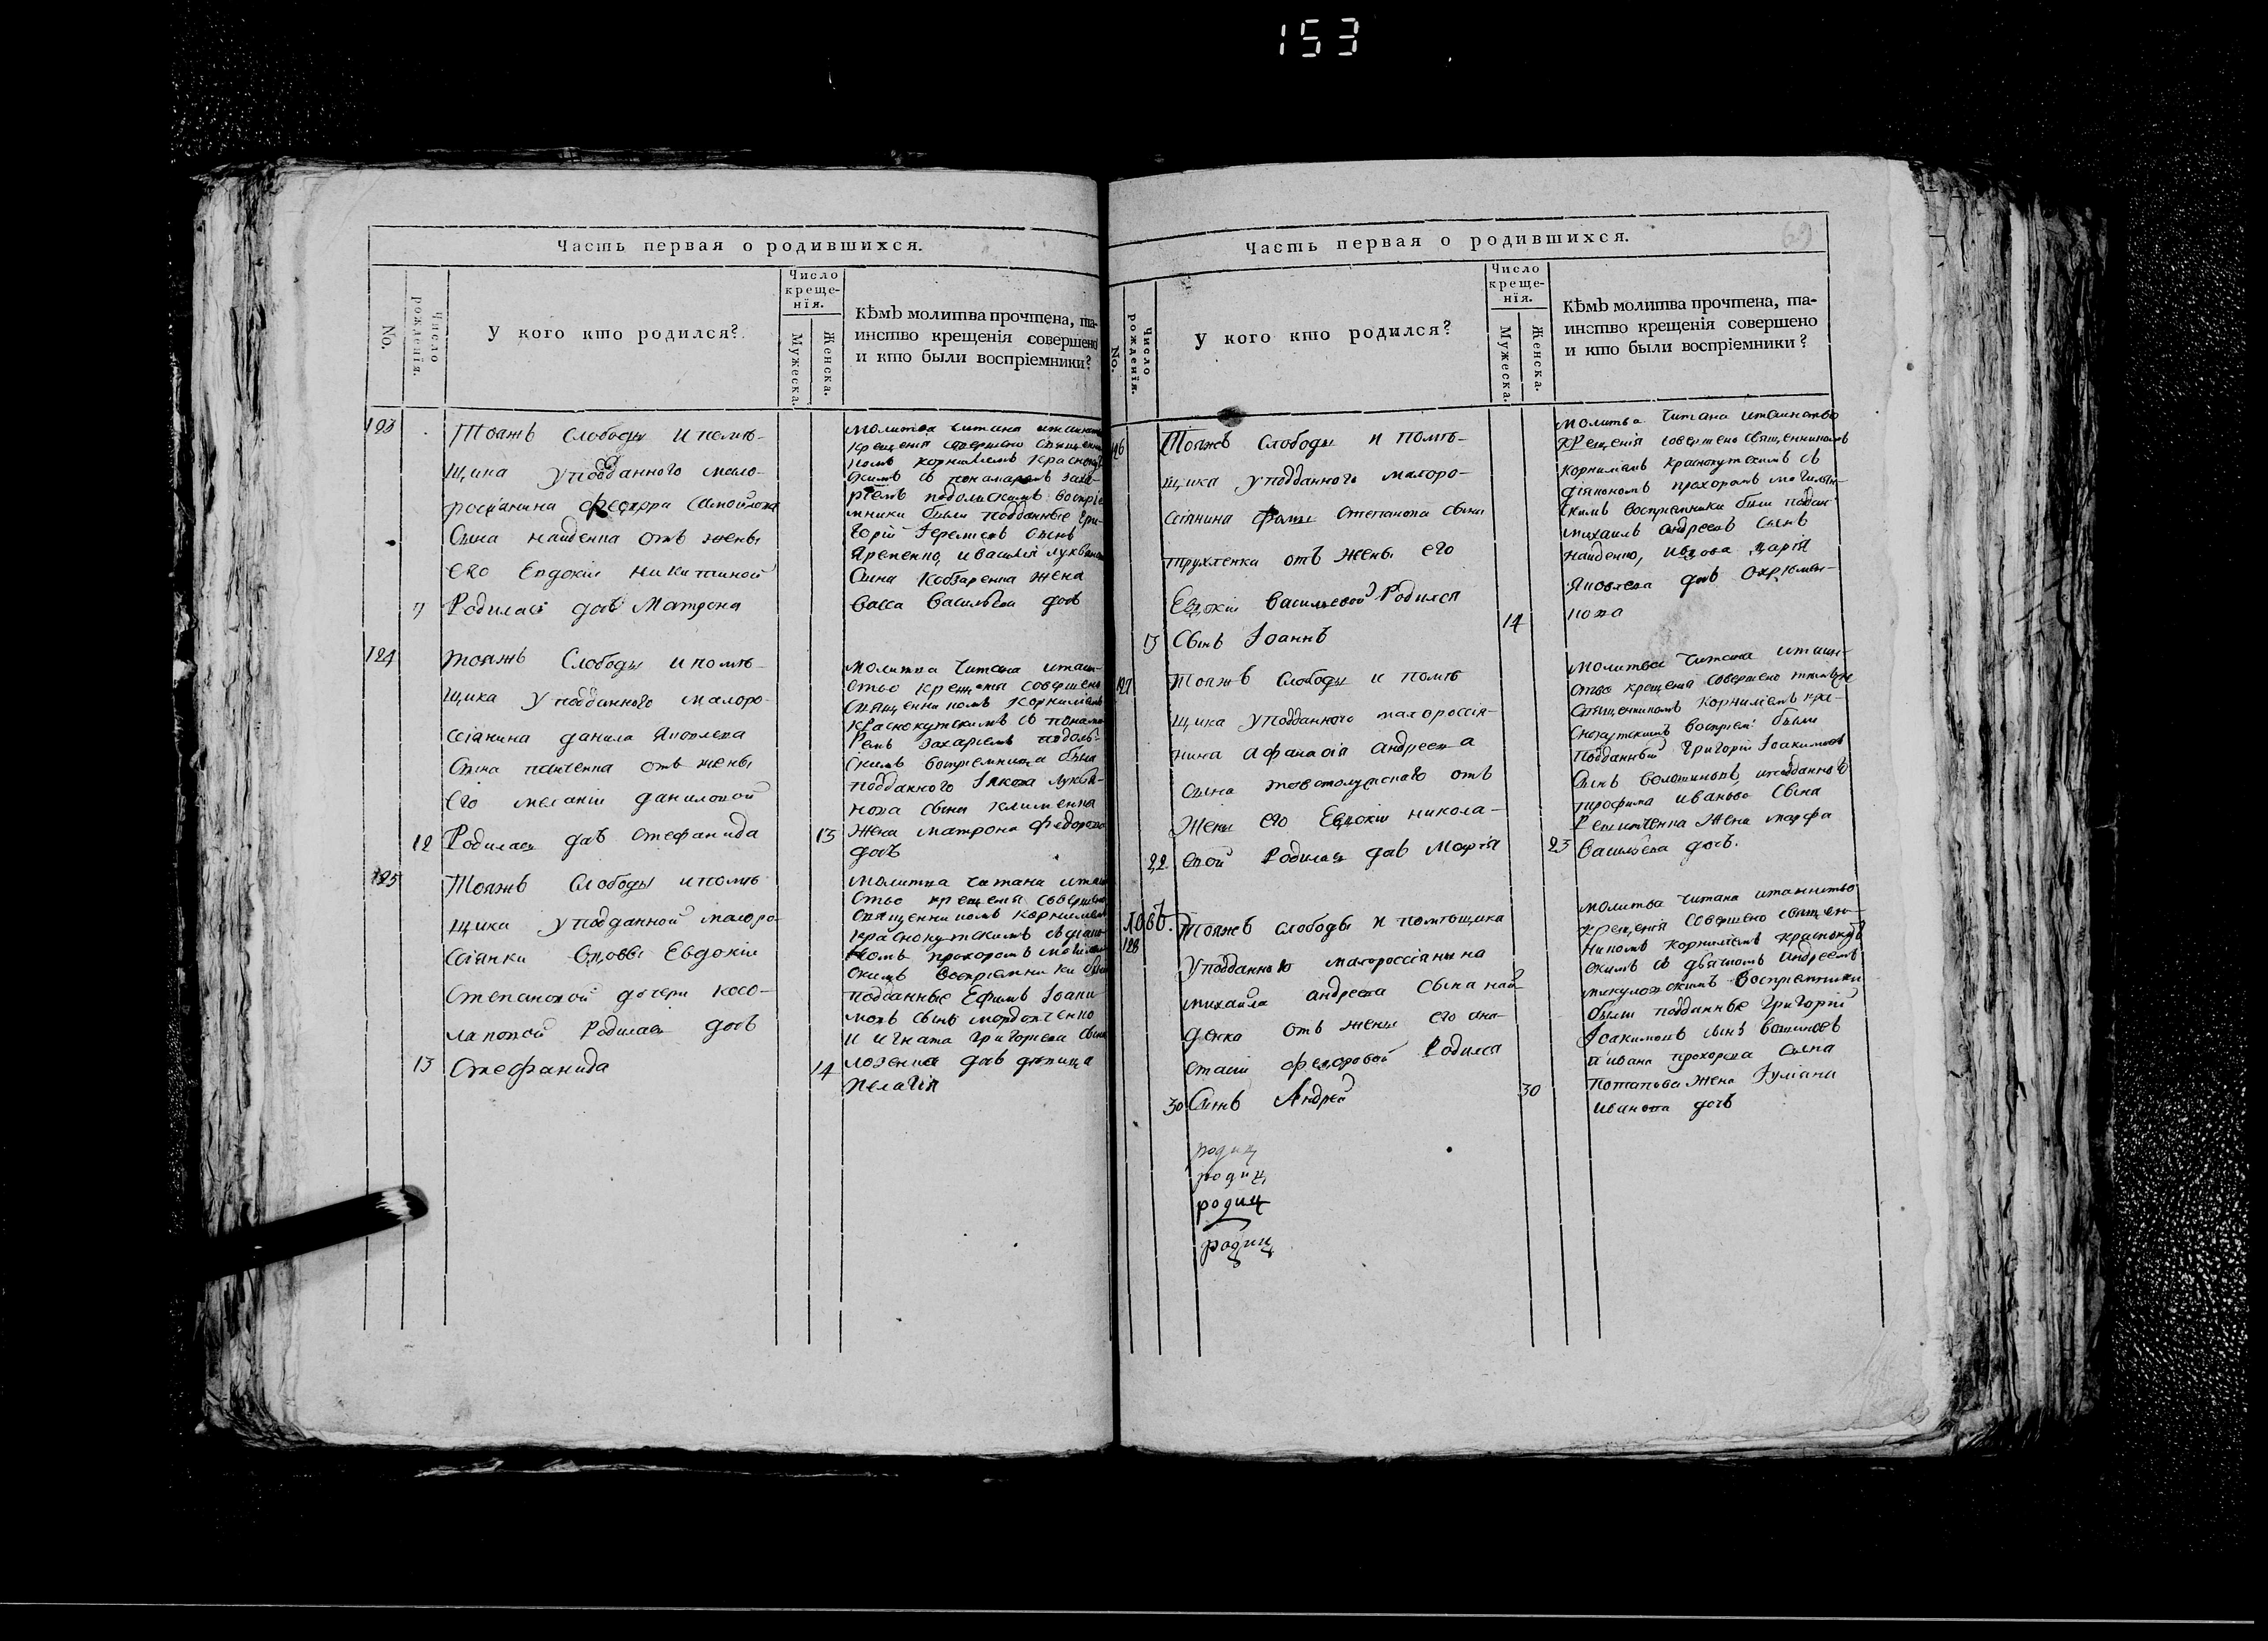 153
Часть первая о родившихся.
No.
Число рожденія.
У кого кто родился?
Число
креще-
нїя.
Мужеска.
Женска.
Кѣмъ молитва прочтена, та-
инство крещенія совершено
и кто были воспріемники?
123
Тояжъ слободы и помѣ-
щика у подданного мало-
росіянина Феодора Самойлова
Сына найденка отъ жены
его Евдокіи Никитиной
7 Родилась дочь Матрона
Молитва читана и таинство
крещенія совершено священни
комъ Корниліемъ Краснокут
скимъ съ пономаремъ Заха-
ріемъ Подольскимъ воспріе
мники были подданные Гри-
горій Іереміевъ сынъ
Яременко, и Василія Лукьянова
Сына Кобзаренка жена
Васса Васильева дочь
124
тояжъ Слободы и помѣ-
щика у подданного малоро-
ссіянина Данила Яковлева
Сына отъ жены
его Меланіи Даниловой
12 Родилась дочь Стефанида
13
Молитва читана и таин-
ство крещенія совершено
Священникомъ Корниліемъ
Краснокутскимъ съ понома
ремъ Захаріемъ Подоль-
скимъ воспріемница была
подданного Іякова Лукья-
нова сына Клименка
жена Матрона Федорова
дочь
125
Тояжъ Слободы и помѣ
щика у подданной малоро-
ссіянки вдовы Евдокіи
Степановой дочери Косо-
лаповой Родилась дочь
13 Стефанида
14
Молитва читана и таин
ство крещенія совершено
Священникомъ Корниліемъ
Краснокутскимъ съ діяко-
номъ Прохоромъ Могилян
скимъ воспріемники были
подданные Ефимъ Іоани
мовъ сынъ
и Игната Григорьева сына
дочь дѣвица
Пелагія
Часть первая о родившихся.
69
No.
Число рожденія.
У кого кто родился?
Число
креще-
нїя.
Мужеска.
Женска.
Кѣмъ молитва прочтена, та-
инство крещенія совершено
и кто были воспріемники?
126
Тояжъ слободы и помѣ-
щика у подданного малоро-
ссіянина Фомы Степанова сына
Трухленка отъ жены его
Евдокіи Васильевой Родился
13 Сынъ Іоаннъ
14
Молитва читана и таинство
крещенія совершено священникомъ
Корниліемъ Краснокутскимъ съ
діякономъ Прохоромъ Могилян-
скимъ воспріемники были поддан
Михаилъ Андреевъ сынъ
Найденко, и вдова Дарія
Яковлева дочь Охрімен-
кова
127
Тояжъ слободы и помѣ
щика у подданного малороссія-
нина Афанасія Андреева
сына отъ
жены его Евдокіи Никола-
евой Родилась дочь Марія
22
23
Молитва читана и таин-
ство крещенія совершено тѣмъ же
священникомъ Корниліемъ Кра-
снокутскимъ воспріем: были
подданный Григорій Іоакимовъ
сынъ Волошиновъ, и подданного
Трофима Иванова сына
жена Марфа
Васильева дочь.
128
Тояжъ слободы и помѣщика
у подданного малороссіянина
Михаила Андреева сына най-
денка отъ жены его Ана-
стасіи Федоровой Родился
30 Сынъ Андрей
30
Молитва читана и таинство
крещенія совершено священ-
никомъ Корниліемъ Краснокут
скимъ съ дьячкомъ Андреемъ
воспріемники
были подданные Григорій
Іоакимовъ сынъ Волошиновъ
и Ивана Прохорова сына
Потапова жена Іуліяна
Иванова дочь
родиц
родиц
родиц
родиц